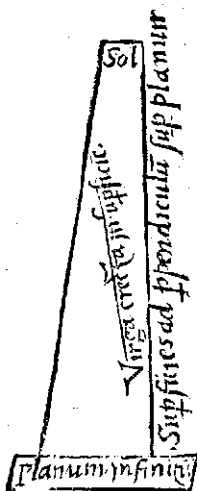 Sol
Virga erecta in supficie.
Supficies ad ppendiculū sup planum
planum infinitū